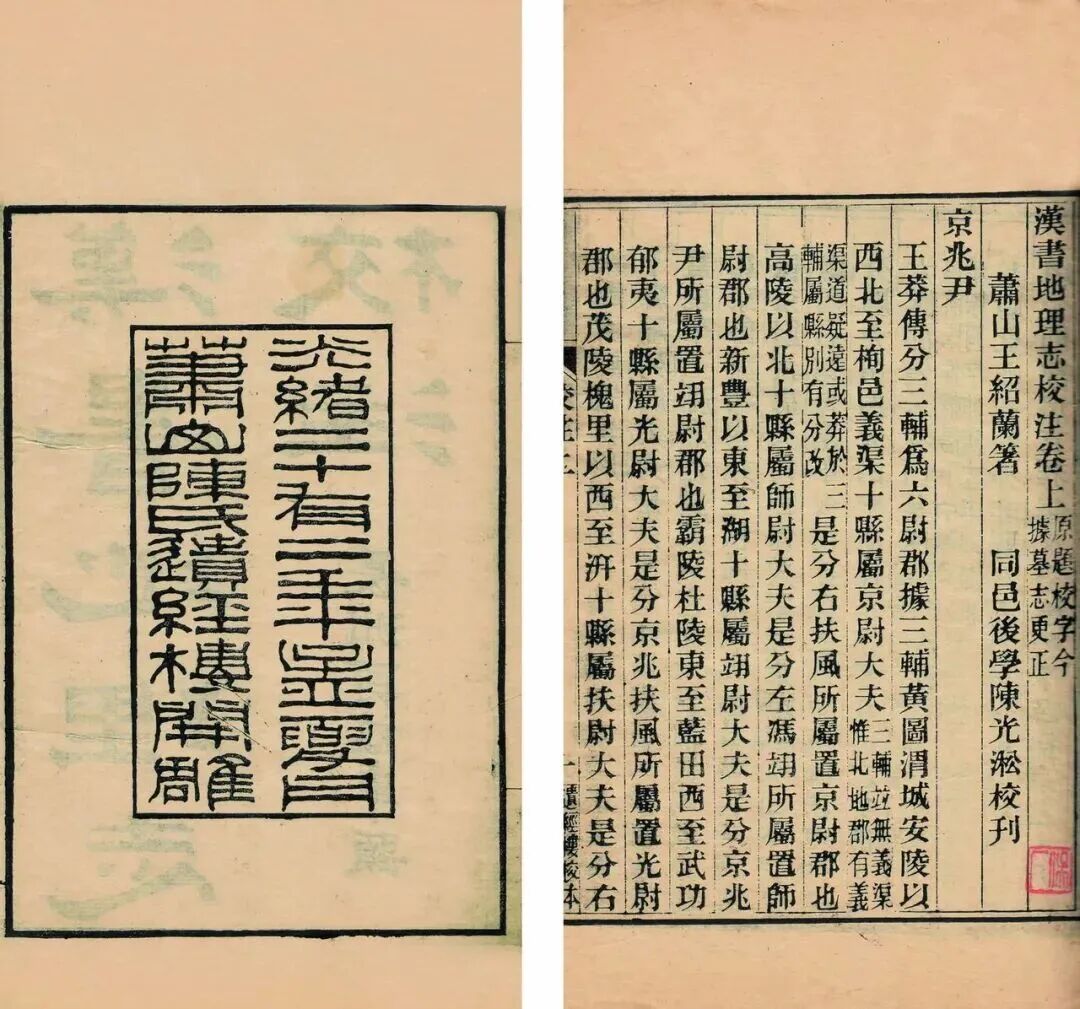 光緒三十有二年孟夏月
蕭山陳氏遺經樓開雕
漢書地理志校注卷上原題校字今據墓志更正
蕭山王紹蘭箸　同邑後學陳光淞校刊
京兆尹
王莽傳分三輔爲六尉郡據三輔黃圖渭城安陵以
西北至栒邑義渠十縣屬京尉大夫三輔並無義渠惟北地郡有義
渠道疑遠或莽於三輔屬縣別有分改是分右扶風所屬置京尉郡也
高陵以北十縣屬師尉大夫是分左馮翊所屬置師
尉郡也新豐以東至湖十縣屬翊尉大夫是分京兆
尹所屬置翊尉郡也霸陵杜陵東至藍田西至武功
郁夷十縣屬光尉大夫是分京兆扶風所屬置光尉
郡也茂陵槐里以西至汧十縣屬扶尉大夫是分右
一　遺經樓校本